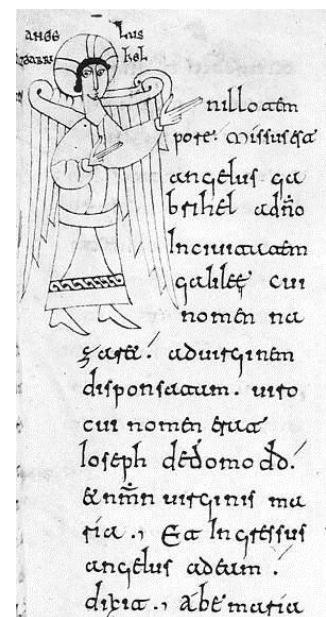 ANGE LUS
GABRI hEL
nillo tem
pore. missus est
angelus ga
brihel a dño
In ciuitatem
galileę cui
nomen na
zaret. ad uirginem
disponsatam. uiro
cui nomen erat
Ioseph de domo dđ.
& nm̄n uirginis ma
ria., Et Ingressus
angelus ad eam.
dixit., Abe maria